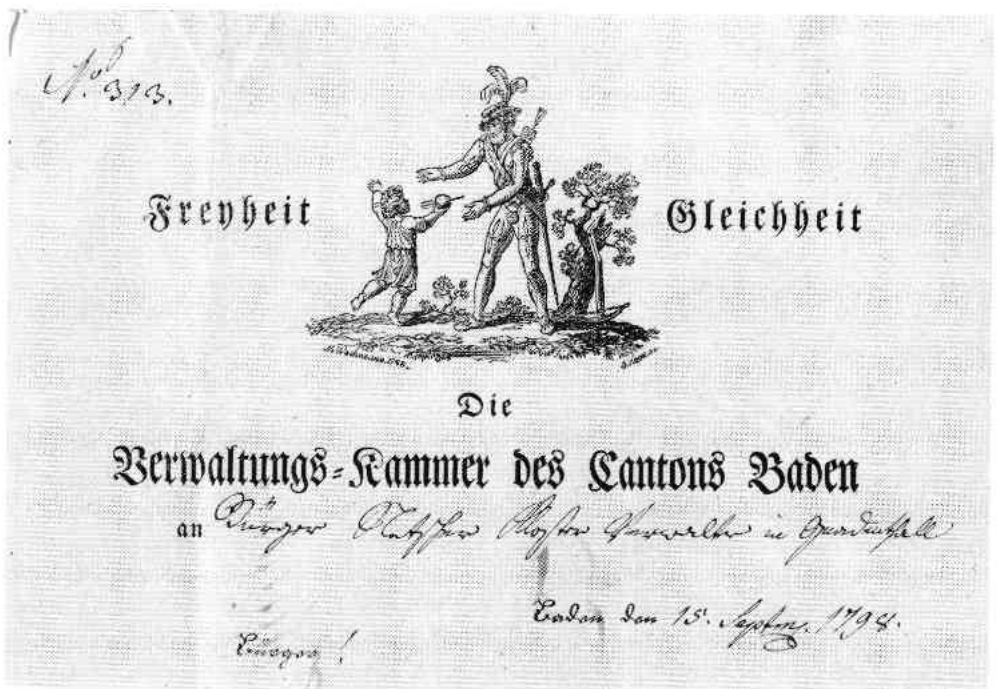 No. 313.
Freyheit
Gleichheit
Die
Verwaltungs-Kammer des Cantons Baden
an Bürger Kloster Verwalter in Gnadenthall
Baden den 15. Septm. 1798.
Bürger!